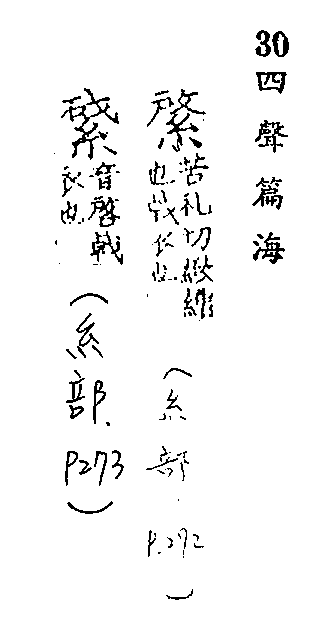 30四聲篇海
綮苦礼切緻繒也戟衣也(糸部.P.292)
音啓戟衣也(糸部.P273)